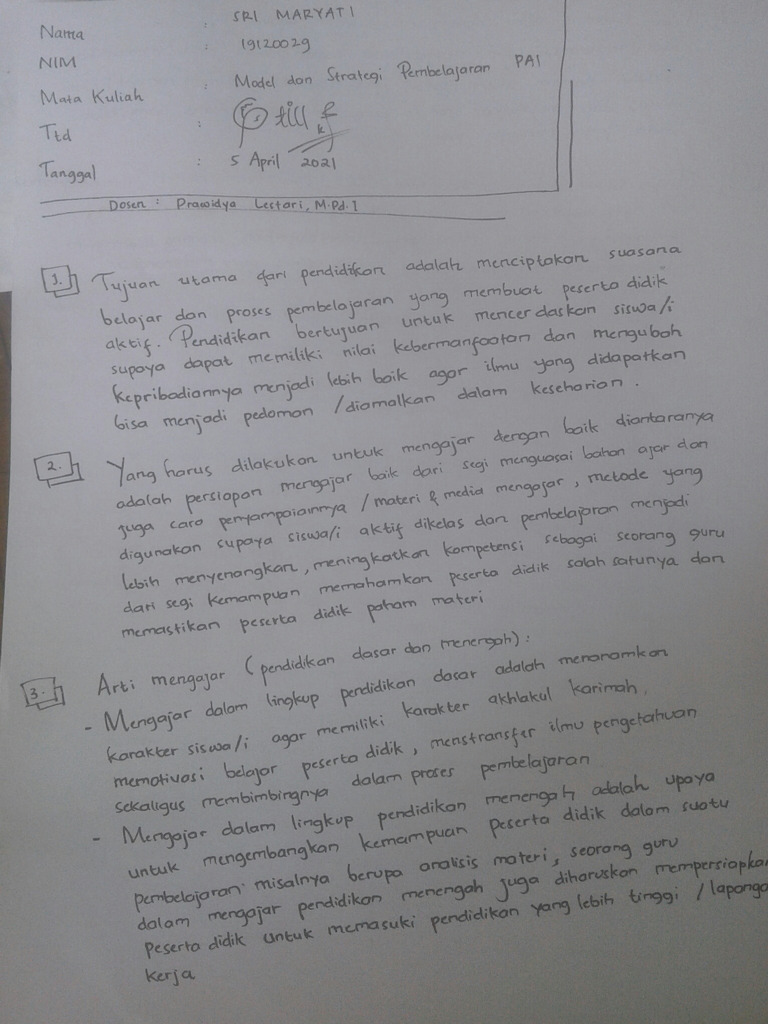 Nama : SRI MARYATI
NIM : 19120029
Mata Kuliah : Model dan Strategi Pembelajaran PAI
Ttd :
Tanggal : 5 April 2021
Dosen : Prawidya Lestari, M.Pd.I
1. Tujuan utama dari pendidikan adalah menciptakan suasana
belajar dan proses pembelajaran yang membuat peserta didik
aktif. Pendidikan bertujuan untuk mencerdaskan siswa/i
supaya dapat memiliki nilai kebermanfaatan dan mengubah
kepribadiannya menjadi lebih baik agar ilmu yang didapatkan
bisa menjadi pedoman /diamalkan dalam keseharian.
2. Yang harus dilakukan untuk mengajar dengan baik diantaranya
adalah persiapan mengajar baik dari segi menguasai bahan ajar dan
juga cara penyampaiannya /materi & media mengajar, metode yang
digunakan supaya siswa/i aktif dikelas dan pembelajaran menjadi
lebih menyenangkan, meningkatkan kompetensi sebagai seorang guru
dari segi kemampuan memahamkan peserta didik salah satunya dan
memastikan peserta didik paham materi
3. Arti mengajar (pendidikan dasar dan menengah) :
- Mengajar dalam lingkup pendidikan dasar adalah menanamkan
karakter siswa/i agar memiliki karakter akhlakul karimah,
memotivasi belajar peserta didik, menstransfer ilmu pengetahuan
sekaligus membimbingnya dalam proses pembelajaran
- Mengajar dalam lingkup pendidikan menengah adalah upaya
untuk mengembangkan kemampuan peserta didik dalam suatu
pembelajaran misalnya berupa analisis materi, seorang guru
dalam mengajar pendidikan menengah juga diharuskan mempersiapkan
peserta didik untuk memasuki pendidikan yang lebih tinggi /lapanga
kerja